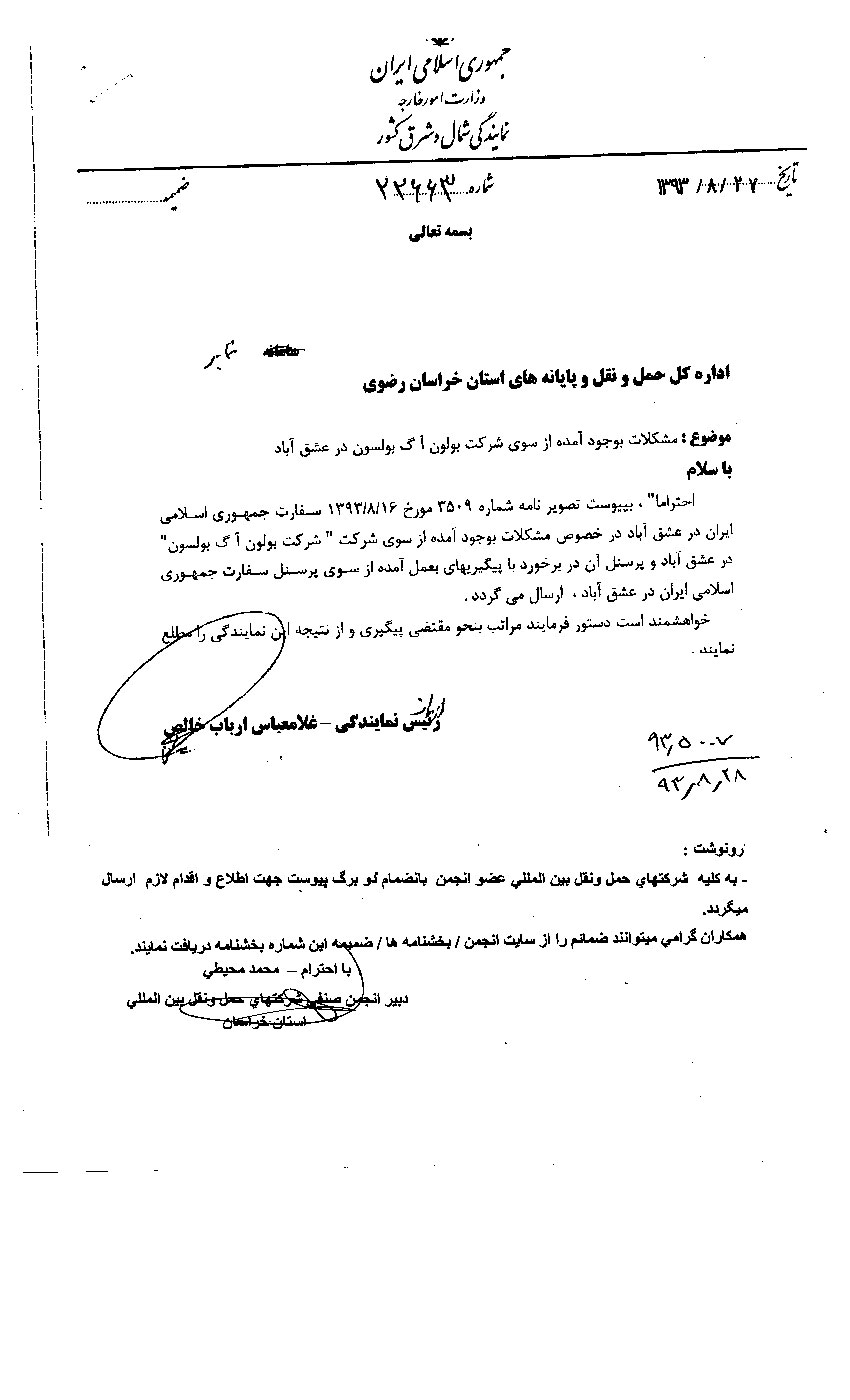 جمهوری اسلامی ایران
وزارت امور خارجه
نمایندگی شمال و شرق کشور
تاریخ ۱۳۹۳/۸/۲۷ شماره ۲۲۶۶۳ ضمیمه
بسمه تعالی
نمابر
اداره کل حمل و نقل و پایانه های استان خراسان رضوی
موضوع : مشکلات بوجود آمده از سوی شرکت بولون آ گ بولسون در عشق آباد
با سلام
احتراما" ، بپیوست تصویر نامه شماره ۳۵۰۹ مورخ ۱۳۹۳/۸/۱۶ سفارت جمهوری اسلامی
ایران در عشق آباد در خصوص مشکلات بوجود آمده از سوی شرکت " شرکت بولون آ گ بولسون"
در عشق آباد و پرسنل آن در برخورد با پیگیریهای بعمل آمده از سوی پرسنل سفارت جمهوری
اسلامی ایران در عشق آباد ، ارسال می گردد .
خواهشمند است دستور فرمایند مراتب بنحو مقتضی پیگیری و از نتیجه این نمایندگی را مطلع
نمایند .
رئیس نمایندگی – غلامعباس ارباب خالص
۹۳٫۵۰۰۷
۹۳٫۸٫۲۸
رونوشت :
- به کلیه شرکتهای حمل ونقل بین المللی عضو انجمن بانضمام دو برگ پیوست جهت اطلاع و اقدام لازم ارسال
میگردد.
همکاران گرامی میتوانند ضمائم را از سایت انجمن / بخشنامه ها / ضمیمه این شماره بخشنامه دریافت نمایند.
با احترام – محمد محیطی
دبیر انجمن صنفی شرکتهای حمل ونقل بین المللی
استان خراسان